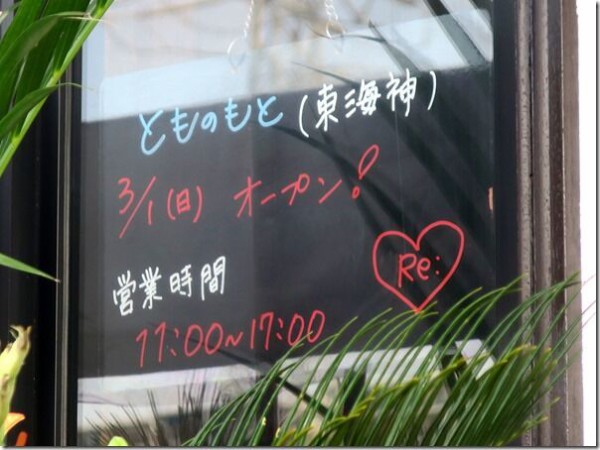 とものもと(東海神)
3/1(日) オープン!
営業時間
Re:
11:00~17:00